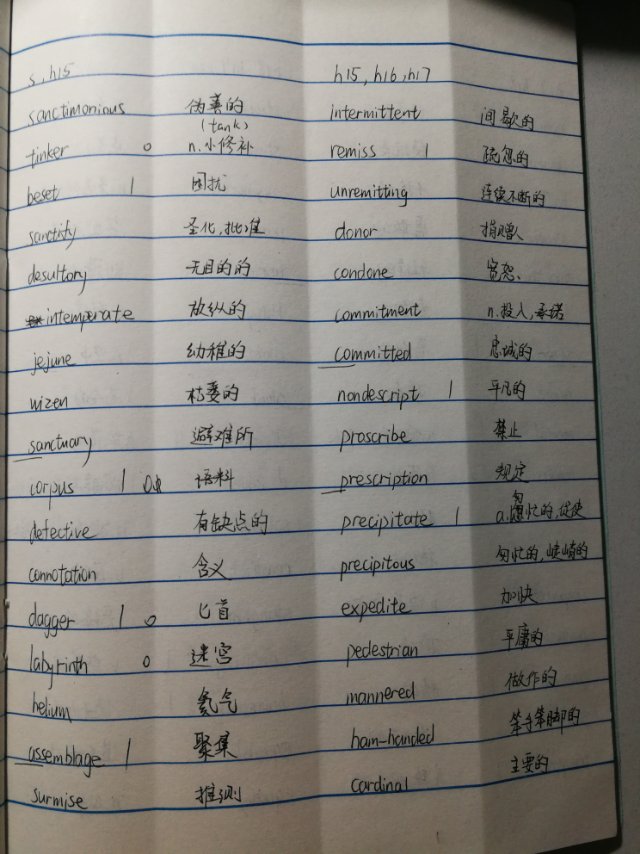 s, h15
sanctimonious 伪善的
(tank)
tinker o n.小修补
beset 1 困扰
sanctify 圣化,批准
desultory 无目的的
intemperate 放纵的
jejune 幼稚的
wizen 枯萎的
sanctuary 避难所
corpus 1 语料
defective 有缺点的
connotation 含义
dagger 1 o 匕首
labyrinth o 迷宫
helium 氦气
assemblage 1 聚集
surmise 推测
h15, h16, h17
intermittent 间歇的
remiss 1 疏忽的
unremitting 连续不断的
donor 捐赠人
condone 宽恕、
commitment n.投入,承诺
committed 忠诚的
nondescript 1 平凡的
proscribe 禁止
prescription 规定
precipitate 1 a.匆忙的,促使
precipitous 匆忙的,陡峭的
expedite 加快
pedestrian 平庸的
mannered 做作的
ham-handed 笨手笨脚的
cardinal 主要的